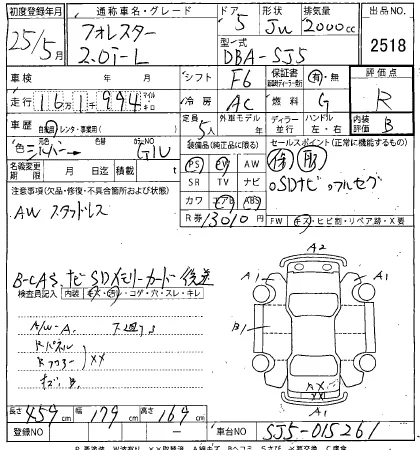 初度登録年月 通称車名・グレード ドア 形状 排気量 出品NO.
25年/5月 フォレスター 2.0i-L 5 2000cc 2518
型式 DBA-SJ5
車検 年 月 シフト F6 保証書 有・無 評価点
走行 16万1千994 マイル キロ 冷房 AC 燃料 G R
車歴 自家用 レンタ・事業用( ) 定員 5人 外車モデル 年 ディーラー 並行 ハンドル 左・右 内装評価 B
色 シルバー 元色 色替 カラーNO G1U 装備品(純正品に限る) セールスポイント(正常に機能するもの)
PS PW AW
名義変更期限 月 日迄 積載量 t SR TV ナビ ○SDナビ ○フルセグ
注意事項(欠品・修復・不具合箇所および状態) カワ エアB ABS
AW スタッドレス R券 13010円 FW キズ・ヒビ割・リペア跡・X要
B-CAS ナビSDメモリーカード 後送
検査員記入 内装 キズ・汚レ・コゲ・穴・スレ・キレ
A2
A1 A1
A/W-A. 下廻りS
B1
Rパネル
Rフロアー XX
キズ B.
XX
A1
長さ 459cm 幅 179cm 高さ 169cm
登録NO — 車台NO SJ5-015261